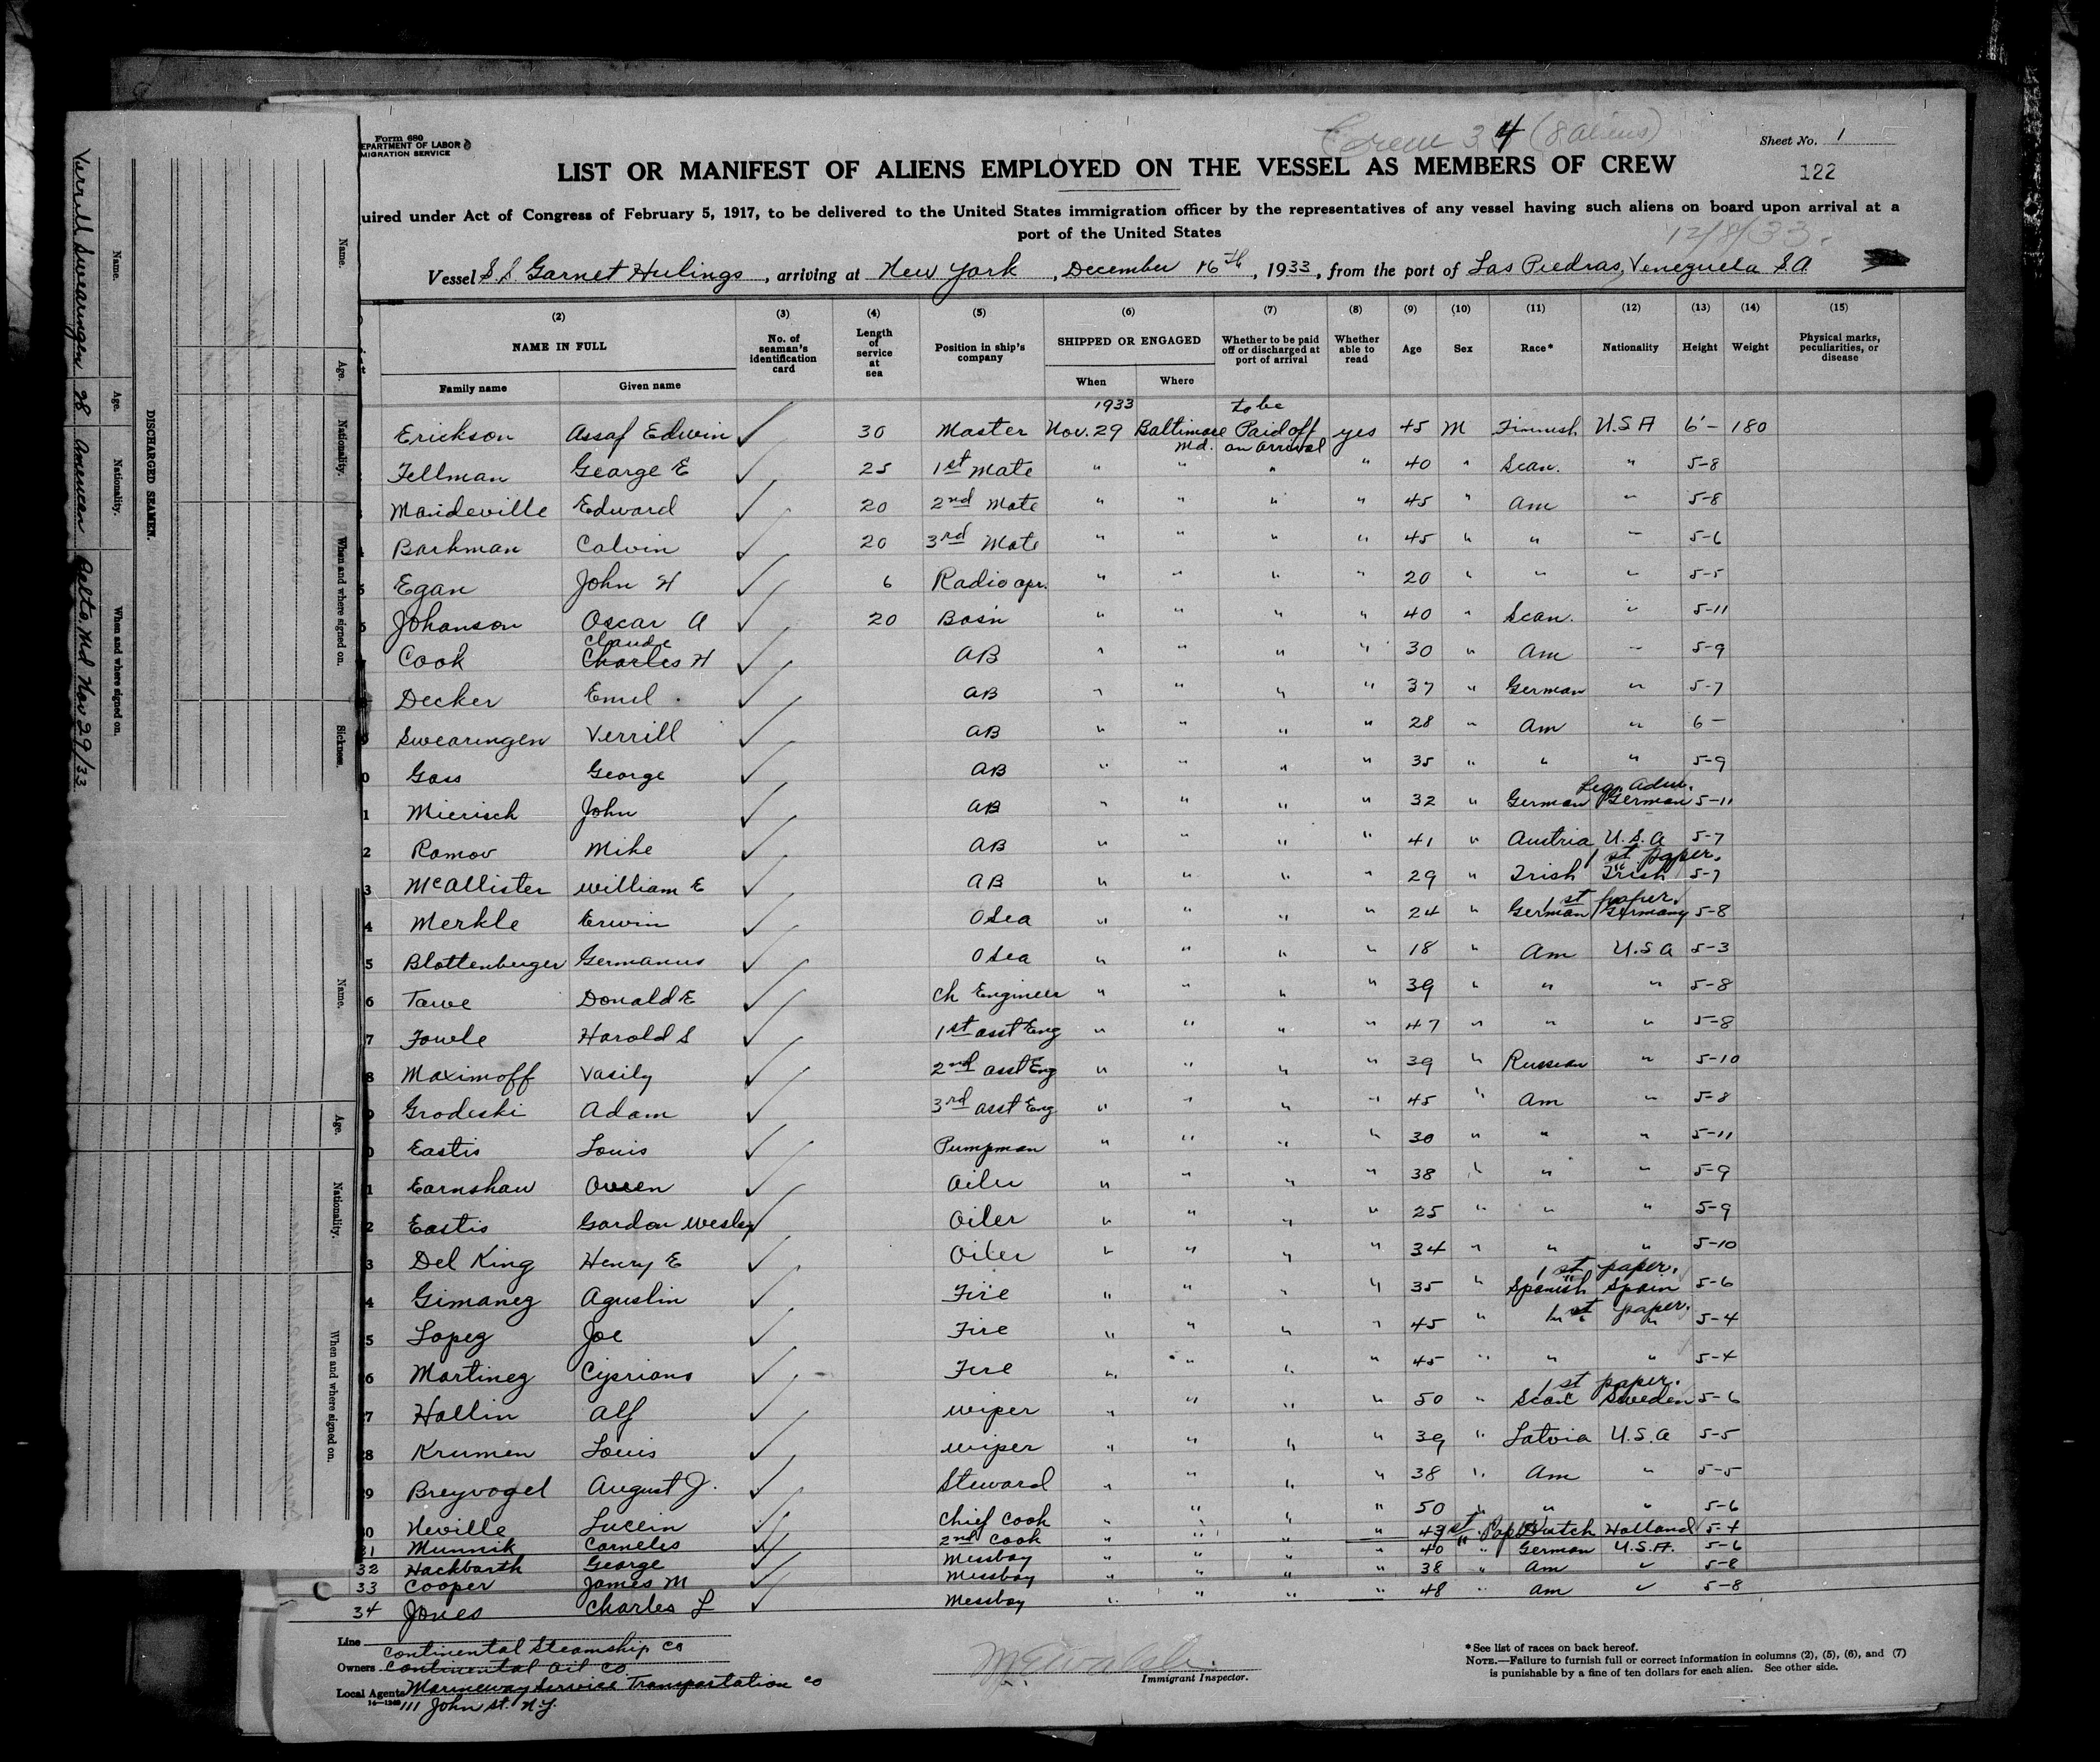 Form 680
EPARTMENT OF LABOR
MIGRATION SERVICE
Crew 34 (8 aliens)
Sheet No. 1
122
LIST OR MANIFEST OF ALIENS EMPLOYED ON THE VESSEL AS MEMBERS OF CREW
uired under Act of Congress of February 5, 1917, to be delivered to the United States immigration officer by the representatives of any vessel having such aliens on board upon arrival at a
port of the United States
12/8/33.
Vessel S.S Garnet Hulings, arriving at New York, December 16th, 1933, from the port of Las Piedras, Venezuela S.A
(2) (3) (4) (5) (6) (7) (8) (9) (10) (11) (12) (13) (14) (15)
NAME IN FULL No. of seaman's identification card Length of service at sea Position in ship's company SHIPPED OR ENGAGED Whether to be paid off or discharged at port of arrival Whether able to read Age Sex Race* Nationality Height Weight Physical marks, peculiarities, or disease
Family name Given name When Where
1933 to be
Erickson Assaf Edwin ✓ 30 Master Nov. 29 Baltimore Paid off yes 45 M Finnish U.S.A 6'– 180
Md. on arrival
Fellman George E ✓ 25 1st Mate " " " " 40 " Scan. " 5-8
Mandeville Edward ✓ 20 2nd Mate " " " " 45 " Am " 5-8
Barkman Calvin ✓ 20 3rd Mate " " " " 45 " " " 5-6
5 Egan John H ✓ 6 Radio opr. " " " " 20 " " " 5-5
Johanson Oscar A ✓ 20 Bosn " " " " 40 " Scan. " 5-11
Claude
Cook Charles H ✓ AB " " " " 30 " Am " 5-9
Decker Emil ✓ AB " " " " 37 " German " 5-7
9 Swearingen Verrill ✓ AB " " " " 28 " Am " 6 –
0 Gass George ✓ AB " " " " 35 " " " 5-9
Leg. Adm.
1 Mierisch John ✓ AB " " " " 32 " German German 5-11
2 Romov Mike ✓ AB " " " " 41 " Austria U.S.A 5-7
1st paper.
3 McAllister William E ✓ AB " " " " 29 " Irish Irish 5-7
1st paper.
4 Merkle Erwin ✓ O Sea " " " " 24 " German Germany 5-8
5 Blottenberger Germanus ✓ O Sea " " " " 18 " Am U.S.A 5-3
6 Tawe Donald E ✓ Ch Engineer " " " " 39 " " " 5-8
7 Fowle Harold S ✓ 1st asst Eng " " " " 47 " " " 5-8
8 Maximoff Vasily ✓ 2nd asst Eng " " " " 39 " Russian " 5-10
9 Grodeski Adam ✓ 3rd asst Eng " " " " 45 " Am " 5-8
0 Eastis Louis ✓ Pumpman " " " " 30 " " " 5-11
1 Earnshaw Owen ✓ Oiler " " " " 38 " " " 5-9
2 Eastis Gordon Wesley ✓ Oiler " " " " 25 " " " 5-9
3 Del King Henry E ✓ Oiler " " " " 34 " " " 5-10
1st paper.
4 Gimanez Agustin ✓ Fire " " " " 35 " Spanish Spain 5-6
1st paper.
5 Lopez Joe ✓ Fire " " " " 45 " " " 5-4
6 Martinez Cipriano ✓ Fire " " " " 45 " " " 5-4
1st paper.
27 Hallin Alf ✓ Wiper " " " " 50 " Scan Sweden 5-6
28 Krumen Louis ✓ Wiper " " " " 39 " Latvia U.S.A 5-5
29 Breyvogel August J. ✓ Steward " " " " 38 " Am " 5-5
30 Neville Lucein ✓ Chief Cook " " " " 50 " " " 5-6
31 Munnik Cornelis ✓ 2nd Cook " " " " 43 1st Paper Dutch Holland 5-4
32 Hackbarth George ✓ Messboy " " " " 40 " German U.S.A. 5-6
33 Cooper James M ✓ Messboy " " " " 38 " Am " 5-8
34 Jones Charles L ✓ Messboy " " " " 48 " Am " 5-8
Line
Continental Steamship Co
Owners Continental Oil Co
Local Agents Marineway Service Transportation Co
16—1248 111 John St. N.Y.
Immigrant Inspector.
*See list of races on back hereof.
NOTE.—Failure to furnish full or correct information in columns (2), (5), (6), and (7)
is punishable by a fine of ten dollars for each alien. See other side.
Verrill Swearingen 28 American Balto, Md Nov 29/33
Name. Age. Nationality. When and where signed on.
DISCHARGED SEAMEN.
Name. Age. Nationality. When and where signed on. Sickness.
Name. Age. Nationality. When and where signed on.